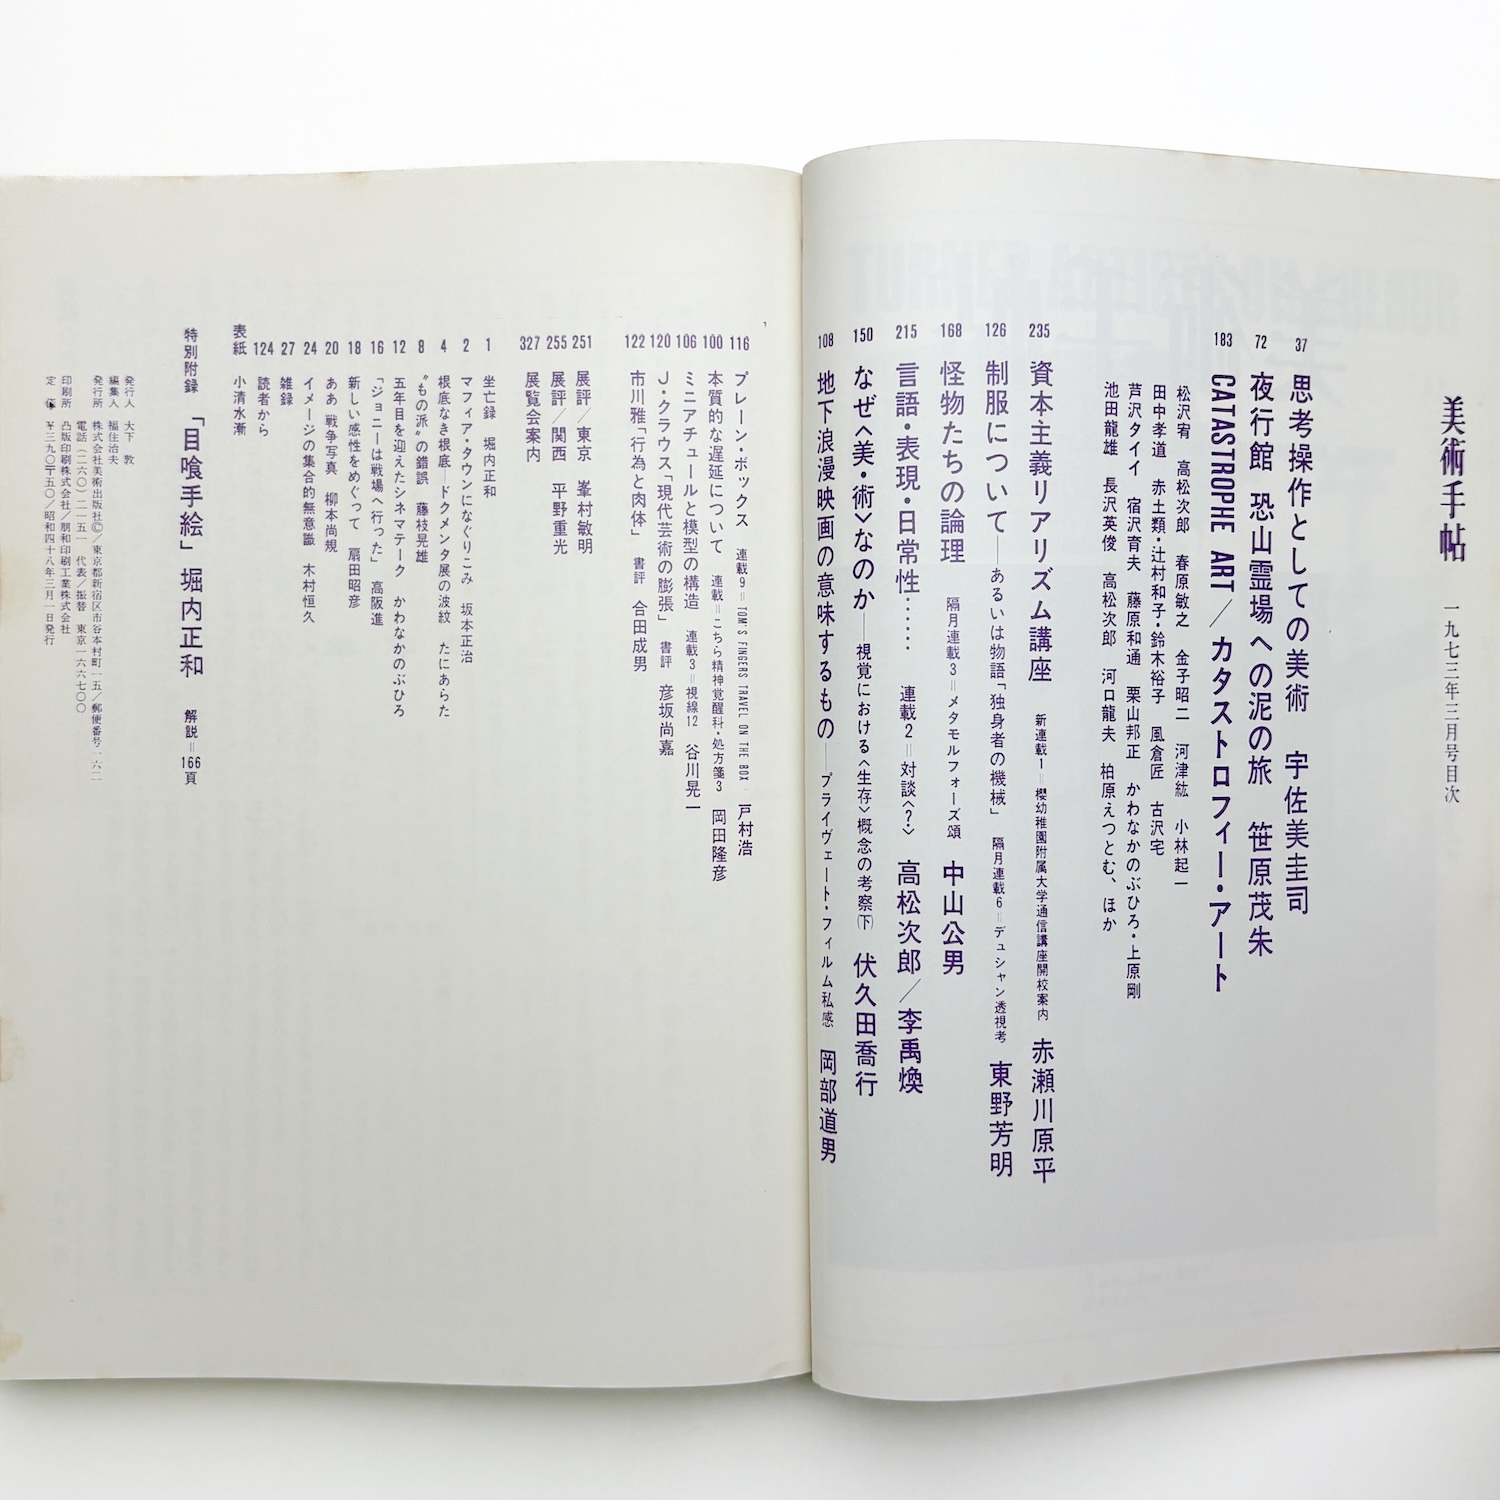 美術手帖 一九七三年三月号目次
37 思考操作としての美術 宇佐美圭司
72 夜行館 恐山霊場への泥の旅 笹原茂朱
183 CATASTROPHE ART／カタストロフィー・アート
松沢宥 高松次郎 春原敏之 金子昭二 河津紘 小林起一
田中孝道 赤土類・辻村和子・鈴木裕子 風倉匠 古沢宅
芦沢タイイ 宿沢育夫 藤原和通 栗山邦正 かわなかのぶひろ・上原剛
池田龍雄 長沢英俊 高松次郎 河口龍夫 柏原えつとむ、ほか
235 資本主義リアリズム講座 新連載1＝櫻幼稚園附属大学通信講座開校案内 赤瀬川原平
126 制服について—あるいは物語「独身者の機械」 隔月連載6＝デュシャン透視考 東野芳明
168 怪物たちの論理 隔月連載3＝メタモルフォーズ頌 中山公男
215 言語・表現・日常性…… 連載2＝対談〈?〉 高松次郎／李禹煥
150 なぜ〈美・術〉なのか—視覚における〈生存〉概念の考察(下) 伏久田喬行
108 地下浪漫映画の意味するもの—プライヴェート・フィルム私感 岡部道男
116 プレーン・ボックス 連載9＝TOM'S FINGERS TRAVEL ON THE BOX 戸村浩
100 本質的な遅延について 連載＝こちら精神覚醒科・処方箋3 岡田隆彦
106 ミニアチュールと模型の構造 連載3＝視線12 谷川晃一
120 J・クラウス「現代芸術の膨張」 書評 彦坂尚嘉
122 市川雅「行為と肉体」 書評 合田成男
251 展評／東京 峯村敏明
255 展評／関西 平野重光
327 展覧会案内
1 坐亡録 堀内正和
2 マフィア・タウンになぐりこみ 坂本正治
4 根底なき根底—ドクメンタ展の波紋 たにあらた
8 〝もの派〟の錯誤 藤枝晃雄
12 五年目を迎えたシネマテーク かわなかのぶひろ
16 「ジョニーは戦場へ行った」 高阪進
18 新しい感性をめぐって 扇田昭彦
20 ああ戦争写真 柳本尚規
24 イメージの集合的無意識 木村恒久
27 雑録
124 読者から
表紙 小清水漸
特別附録 「目喰手絵」堀内正和 解説＝166頁
発行人 大下敦
編集人 福住治夫
発行所 株式会社美術出版社©／東京都新宿区市谷本村町一五／郵便番号一六二
電話（二六〇）二一五一 代表／振替 東京一六六七〇〇
印刷所 凸版印刷株式会社／朋和印刷工業株式会社
定価 ¥三九〇〒五〇／昭和四十八年三月一日発行